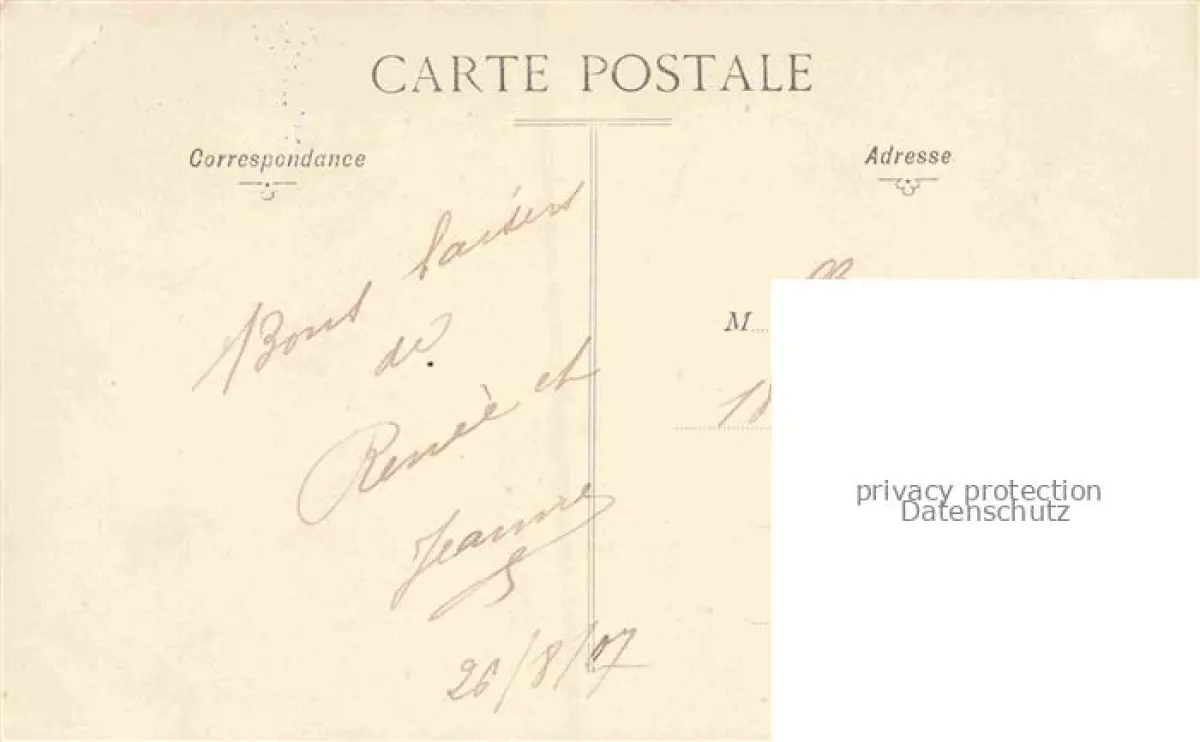 CARTE POSTALE
Correspondance
Adresse
Bons baisers
de
Renée et
Jeanne
26/8/07
M
18
privacy protection
Datenschutz